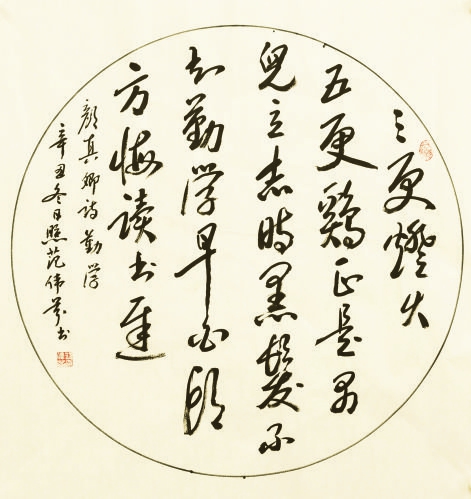 三更燈火
五更鷄正是男
兒立志时黑髮不
知勤学早白首
方悔读书遲
颜真卿诗勤学
辛丑冬日照范伟书